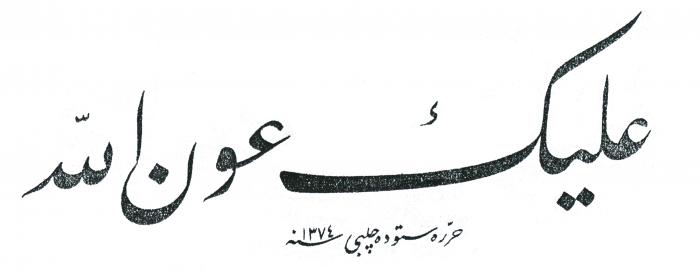 عليك عون الله
حرّره ستوده چلبي سنه ١٣٧٤